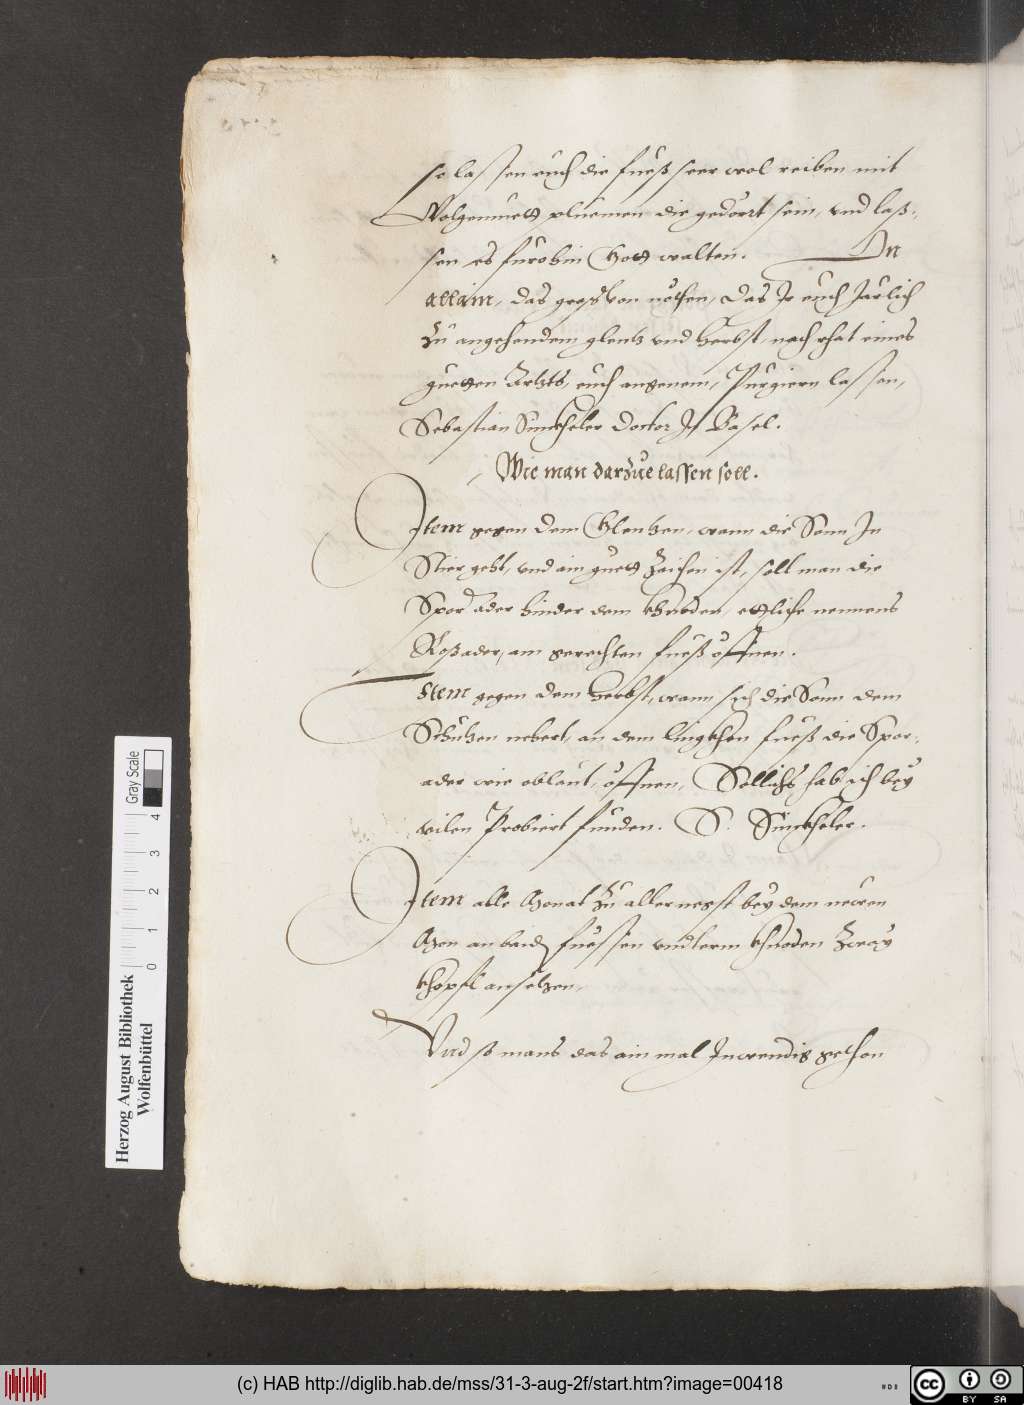 so lassen euch die fueß seer wol reiben mit
Wolgemuett pluemen die gedört sein, vnd laß-
sen es fürohin Gott walten. Du
allain, das groß von nöthen, Das Ir euch Järlich
zu angehendem glentz vnd Herbst, nach rhat eines
guetten Artzts, euch angenem, Purgiern lassen,
Sebastian Sinckheler Doctor Zu Basel.
Wie man darzue lassen soll.
Item gegen dem Glentzen, wann die Sonn In
Stier geht, vnd ain guett Zaichen ist, soll man die
Sporader hinder dem khnoden, ettliche nennens
Roßader, am gerechten fueß öffnen.
Item gegen dem Herbst, wann sich die Sonn dem
Schützen nehert, an dem lingkhen fueß die Spor-
ader wie oblaut, öffnen, Söllichs hab ich bey
vilen Probiert funden. S. Sinckheler.
Item alle Monat zu allernegst bey dem newen
Mon an baid fuessen vnderm khnoden Zway
khöpfl ansetzen.
Vnd so mans das ain mal Inwendig gethon
Herzog August Bibliothek
Wolfenbüttel
Gray Scale
0 1 2 3 4
(c) HAB http://diglib.hab.de/mss/31-3-aug-2f/start.htm?image=00418
cc
BY SA